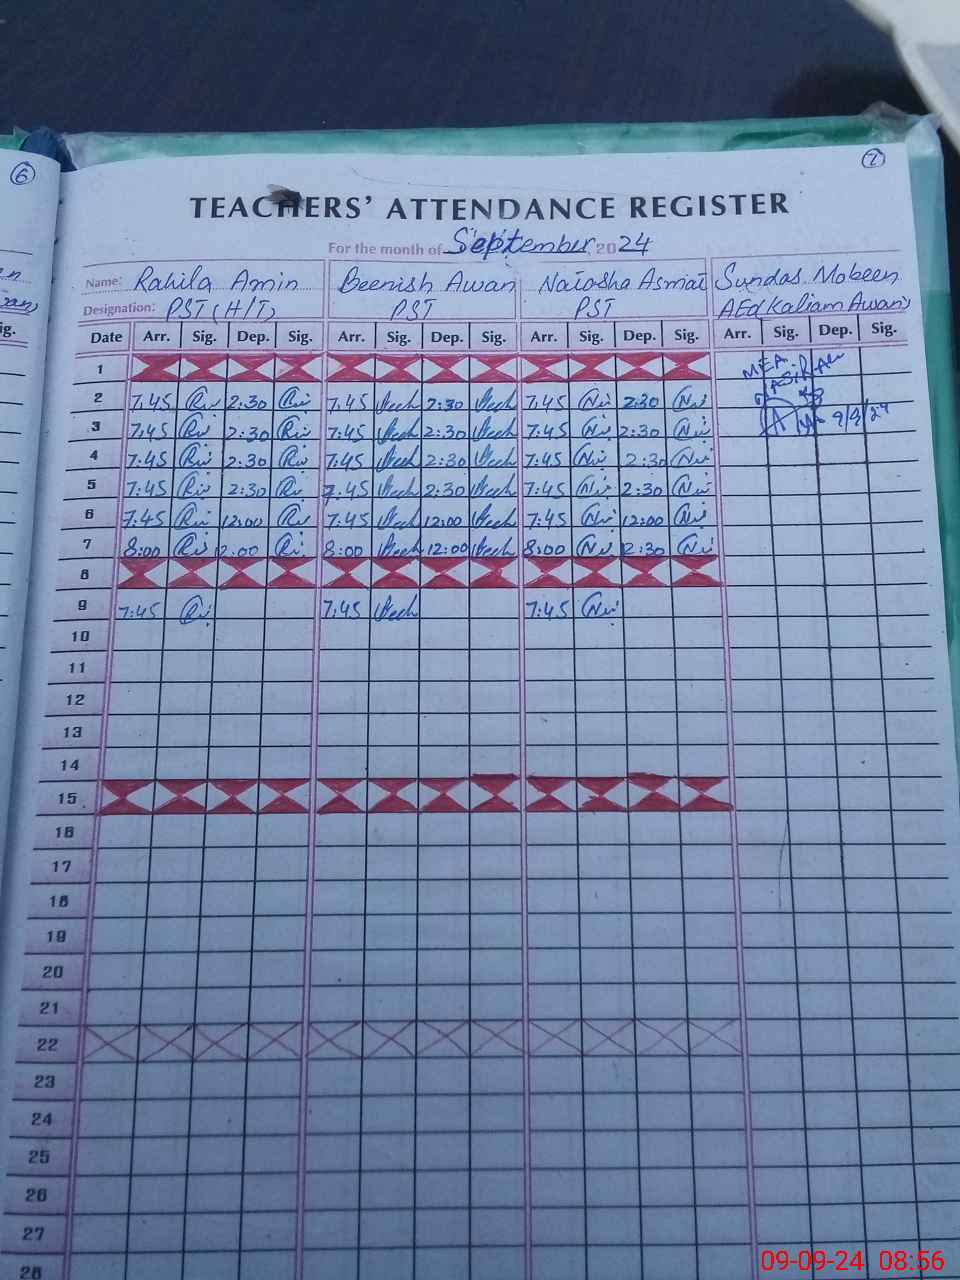 6
7
TEACHERS' ATTENDANCE REGISTER
For the month of September 2024
Name: Rahila Amin Beenish Awan Natasha Asmat Sundas Mobeen
Designation: PST (H/T) PST PST AEd Kaliam Awan)
Sig.
Date Arr. Sig. Dep. Sig. Arr. Sig. Dep. Sig. Arr. Sig. Dep. Sig. Arr. Sig. Dep. Sig.
1 MEA
2 7:45 2:30 7:45 2:30 7:45 2:30
3 7:45 2:30 7:45 2:30 7:45 2:30 9/9/24
4 7:45 2:30 7:45 2:30 7:45 2:30
5 7:45 2:30 7:45 2:30 7:45 2:30
6 7:45 12:00 7:45 12:00 7:45 12:00
7 8:00 2:00 8:00 12:00 8:00 2:30
8
9 7:45 7:45 7:45
10
11
12
13
14
15
16
17
18
19
20
21
22
23
24
25
26
27
28
09-09-24 08:56